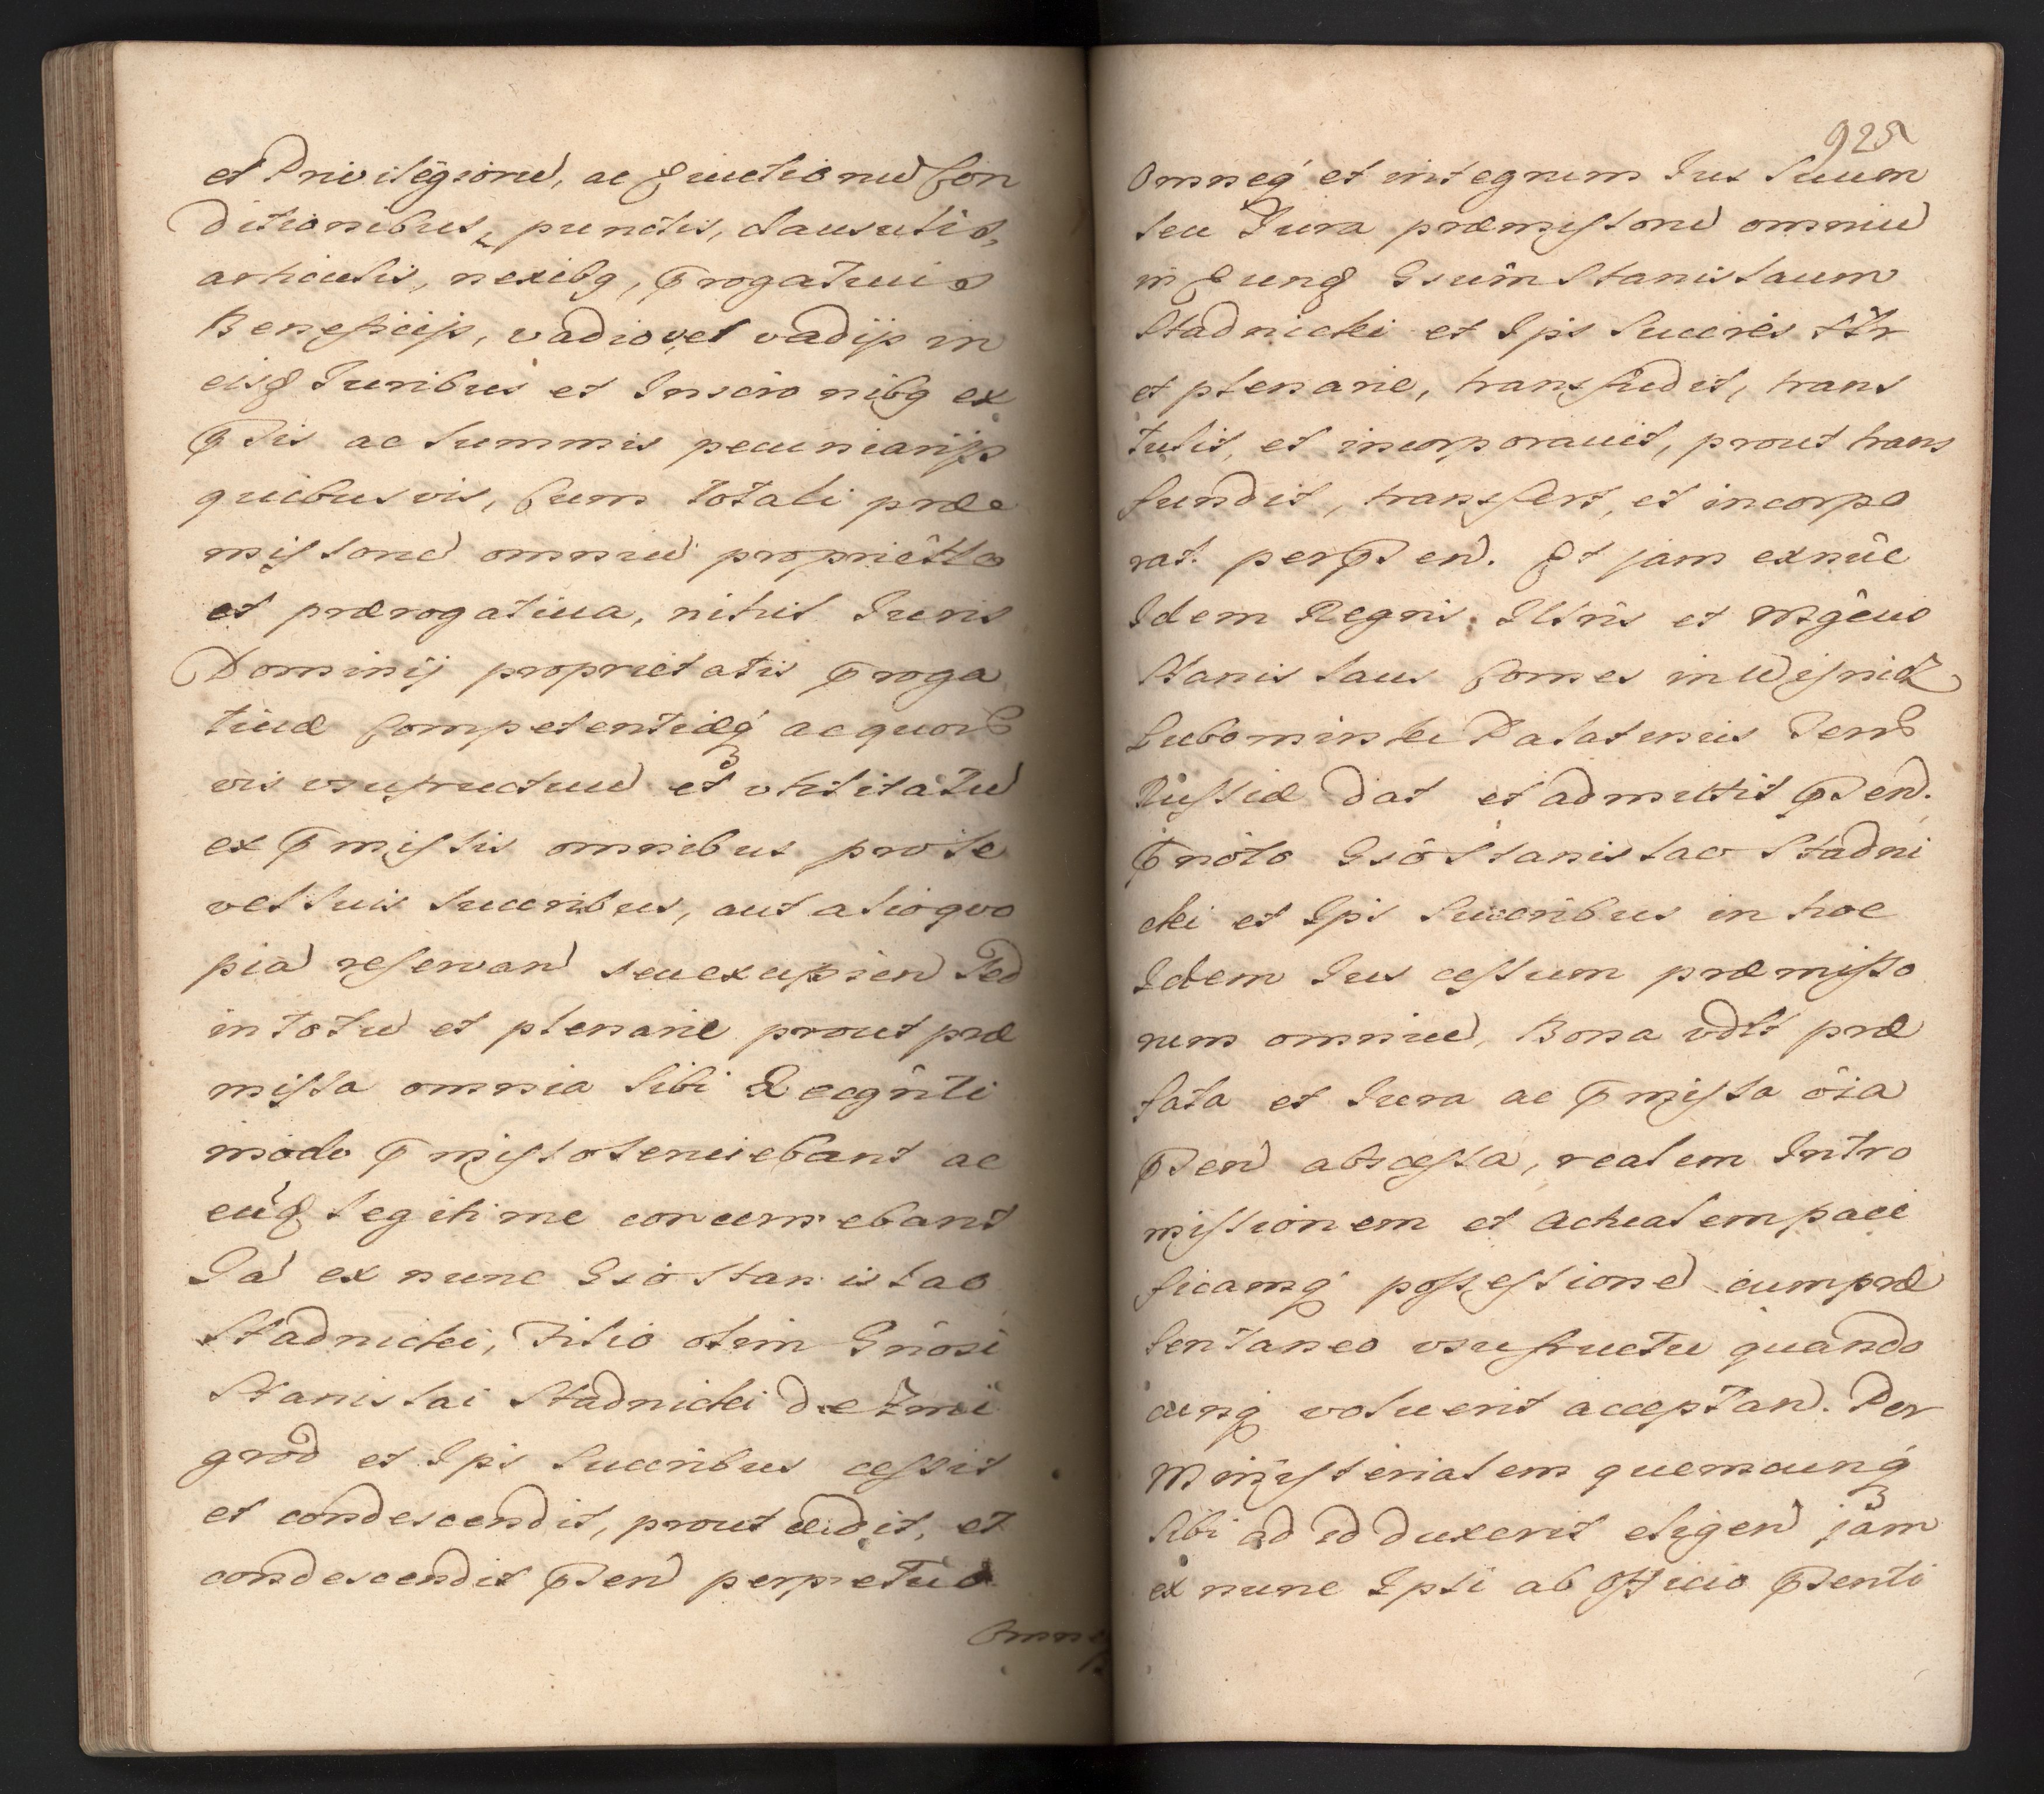 et Privilegiorũ, ac Eiuctionũ Con
ditionibus, punctis, clausulis,
articulis, nexibꝫ, p̄rogatiuis
Beneficijs, vadio vel vadijs in
eisd Iuribus et Inscr̂onibꝫ ex
p̄tis ac summis pecuniarijs
quibusvis, Cum totali præ
missorũ omniũ propriet̂te
et prærogatiua, nihil Iuris
Dominij proprietatis p̄roga
tiuæ Competentiæqꝫ ac quorũ
vis vsufructuũ et vtilitatũ
ex p̄missis omnibus pro se
vel suis succribus, aut alio quo
piã reservan̄ seu excipien̄ Sed
in totũ et plenarie prout præ
missa omnia sibi Recgn̂ti
modo p̄misso seruiebant ac
eud̂ legitime concernebant
Ia ex nunc Gsô Stanislao
Stadnicki, Filio olim Gn̂osi
Stanislai Stadnicki de Zmi
grod et Ipŝ Succribus cessit
et condescendit, prout cedit, et
condescendit p̄sen̄ perpetuo
Omneqꝫ
925
Omneqꝫ et integrum Ius Suum
seu Iura præmissorũ omniũ
in Eund Gsum̂ Stanislaum
Stadnicki et Ipŝ Succrês ttr
et plenarie, transfudit, trans
tulit, et incorporauit, prout trans
fundit, transfert, et incorpo
rat. per p̄sen̄. Et jam exnûc
Idem Regnis. Illr̂is et Mgĉus
Stanislaus Comes in Wisnicz
Lubomirski Palatinus Terrũ
Russiæ dat et admittit p̄sen̄.
p̄noto Gsô Stanislao Stadni
cki et Ipŝ Succribus in hoc
Idem Ius cessum præmisso
rum omniũ, Bona vdlt præ
fata et Iura ac p̄missa ôia
p̄sen̄ abscessa, realem Intro
missionem et Actualem paci
ficamqꝫ possessionẽ cum præ
sentaneo vsufructu quando
cunqꝫ voluerit acceptan̄. Per
Ministerialem quemcunqꝫ
sibi ad id duxerit eligen̄ jam
ex nunc Ipsi ab Officio p̄senti